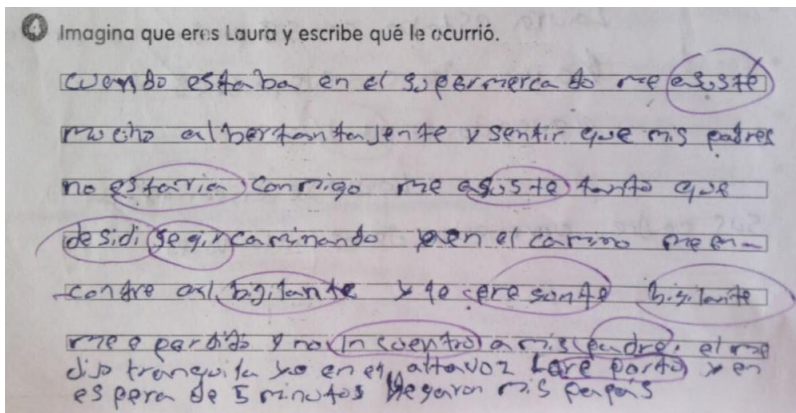 4 Imagina que eres Laura y escribe qué le ocurrió.
cuando estaba en el supermercado me asuste
mucho al ber tanta jente y sentir que mis padres
no estaria conmigo me asuste tanto que
desidi segir caminando y en el camino me en-
contre al bijilante y le
me e perdido y no in cuentro a mis padre. el me
dijo tranquila yo en el altavoz y en
espera de 5 minutos llegaron mis papás